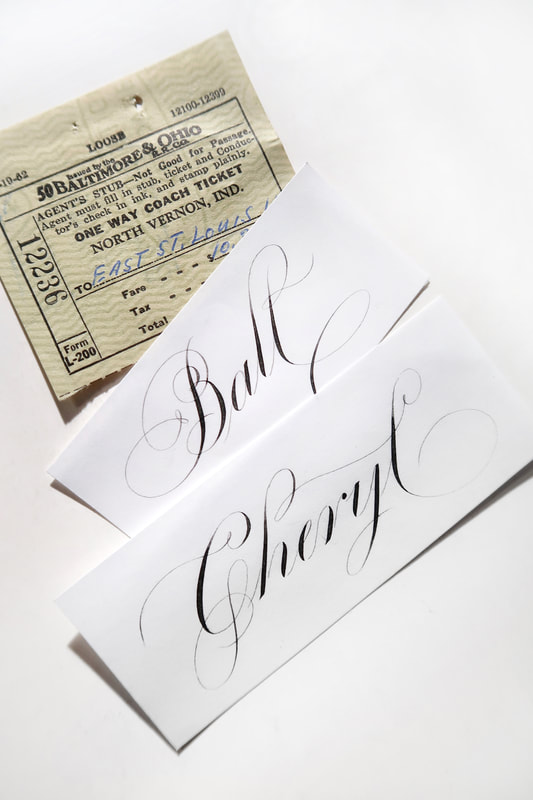 12100-12399
LOOSE
Issued by the
50 BALTIMORE & OHIO
R.R. CO.
AGENT'S STUB—Not Good for Passage.
Agent must fill in stub, ticket and Conduc-
tor's check in ink, and stamp plainly.
ONE WAY COACH TICKET
NORTH VERNON, IND.
12236
TO EAST ST. LOUIS
Fare - - - $10.
Tax - -
Total
Form
L-200
Ball
Cheryl